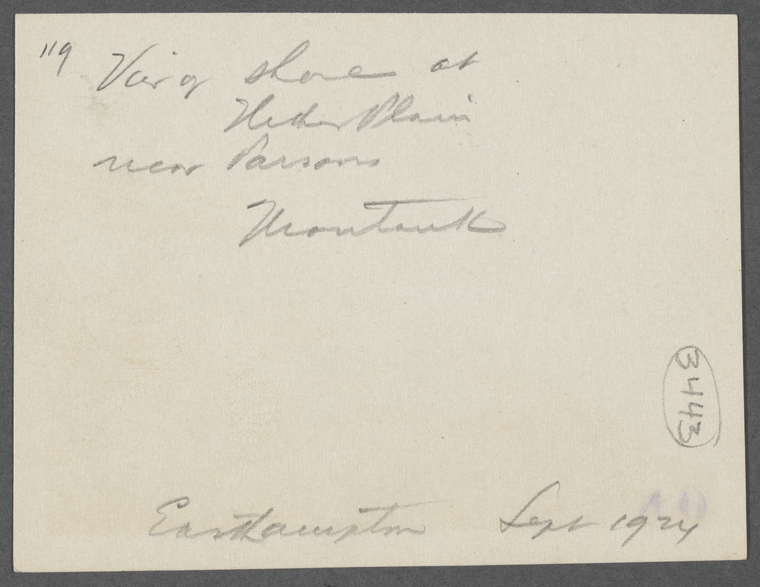 119 View of shore at
Hither Plain
near Parsons
Montauk
3443
Easthampton Sept 1924